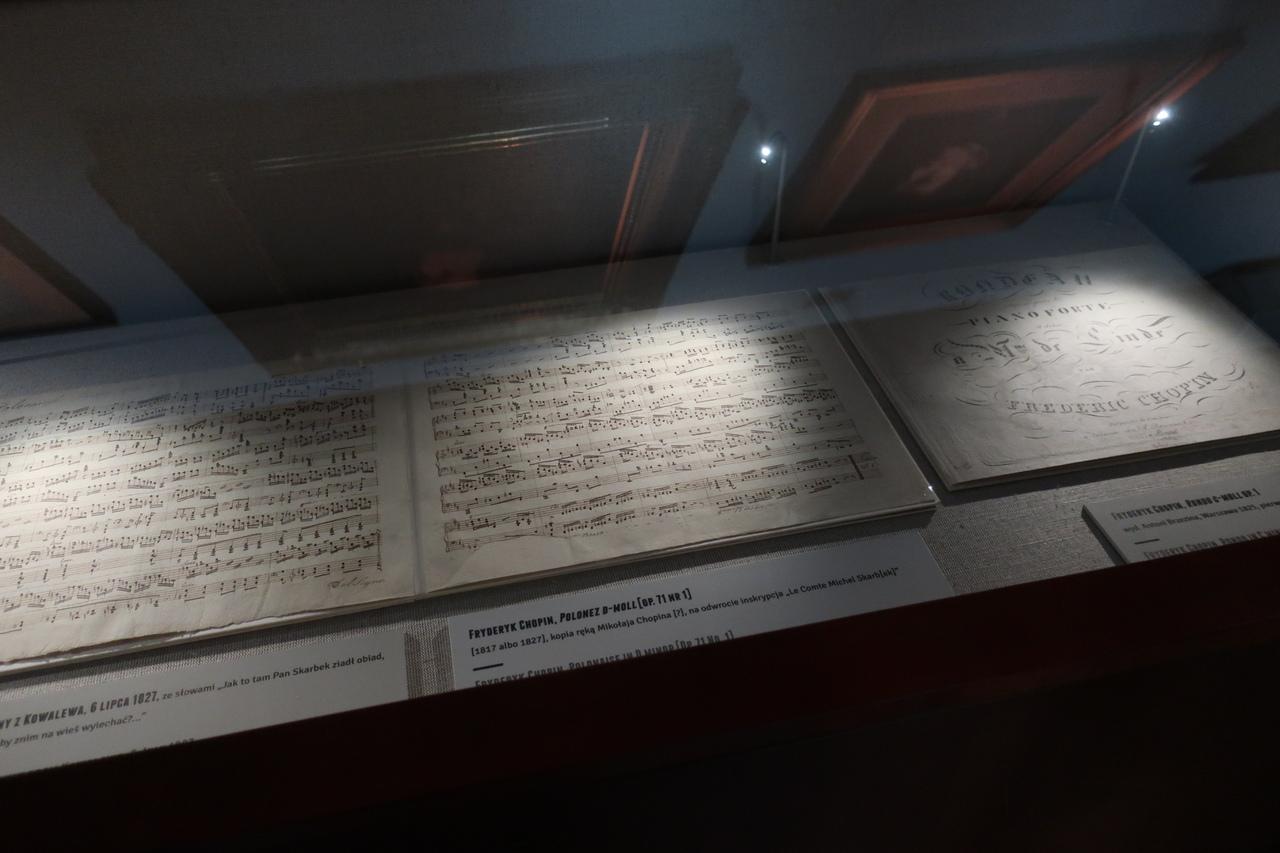 RONDEAU
PIANO FORTE
à Mme de Linde
FREDERIC CHOPIN
Z KOWALEWA, 6 LIPCA 1827, ze słowami „Jak to tam Pan Skarbek ziadł obiad,
by znim na wieś wyiechać?...”
FRYDERYK CHOPIN, POLONEZ D-MOLL [OP. 71 NR 1]
[1817 albo 1827], kopia ręką Mikołaja Chopina [?], na odwrocie inskrypcja „Le Comte Michel Skarb[ek]”
FRYDERYK CHOPIN, POLONAISE IN D MINOR [OP. 71 NO. 1]
FRYDERYK CHOPIN, RONDO C-MOLL OP. 1
wyd. Antoni Brzezina, Warszawa 1825,